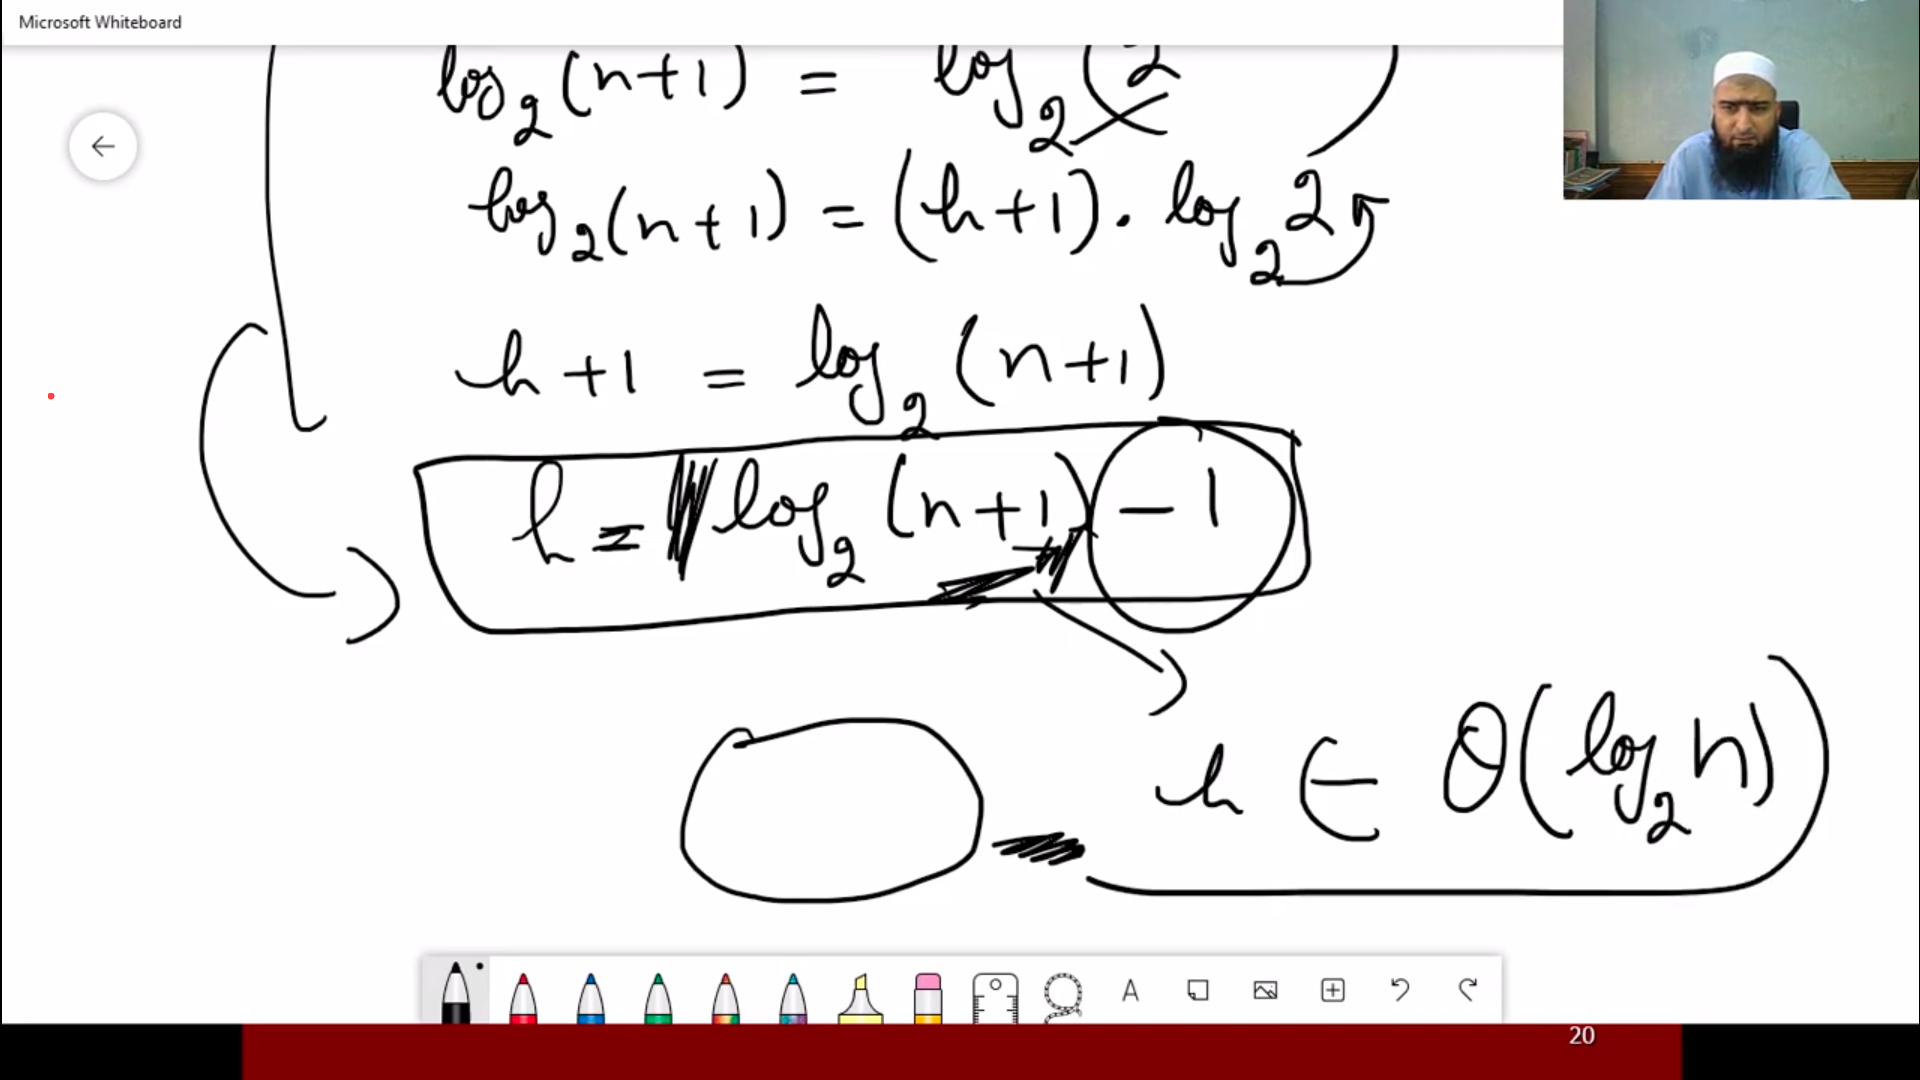 Microsoft Whiteboard
log₂(n+1) = log₂(2
log₂(n+1) = (h+1). log₂2
h+1 = log₂(n+1)
h = log₂(n+1) - 1
h ∈ θ(log₂n)
A
20